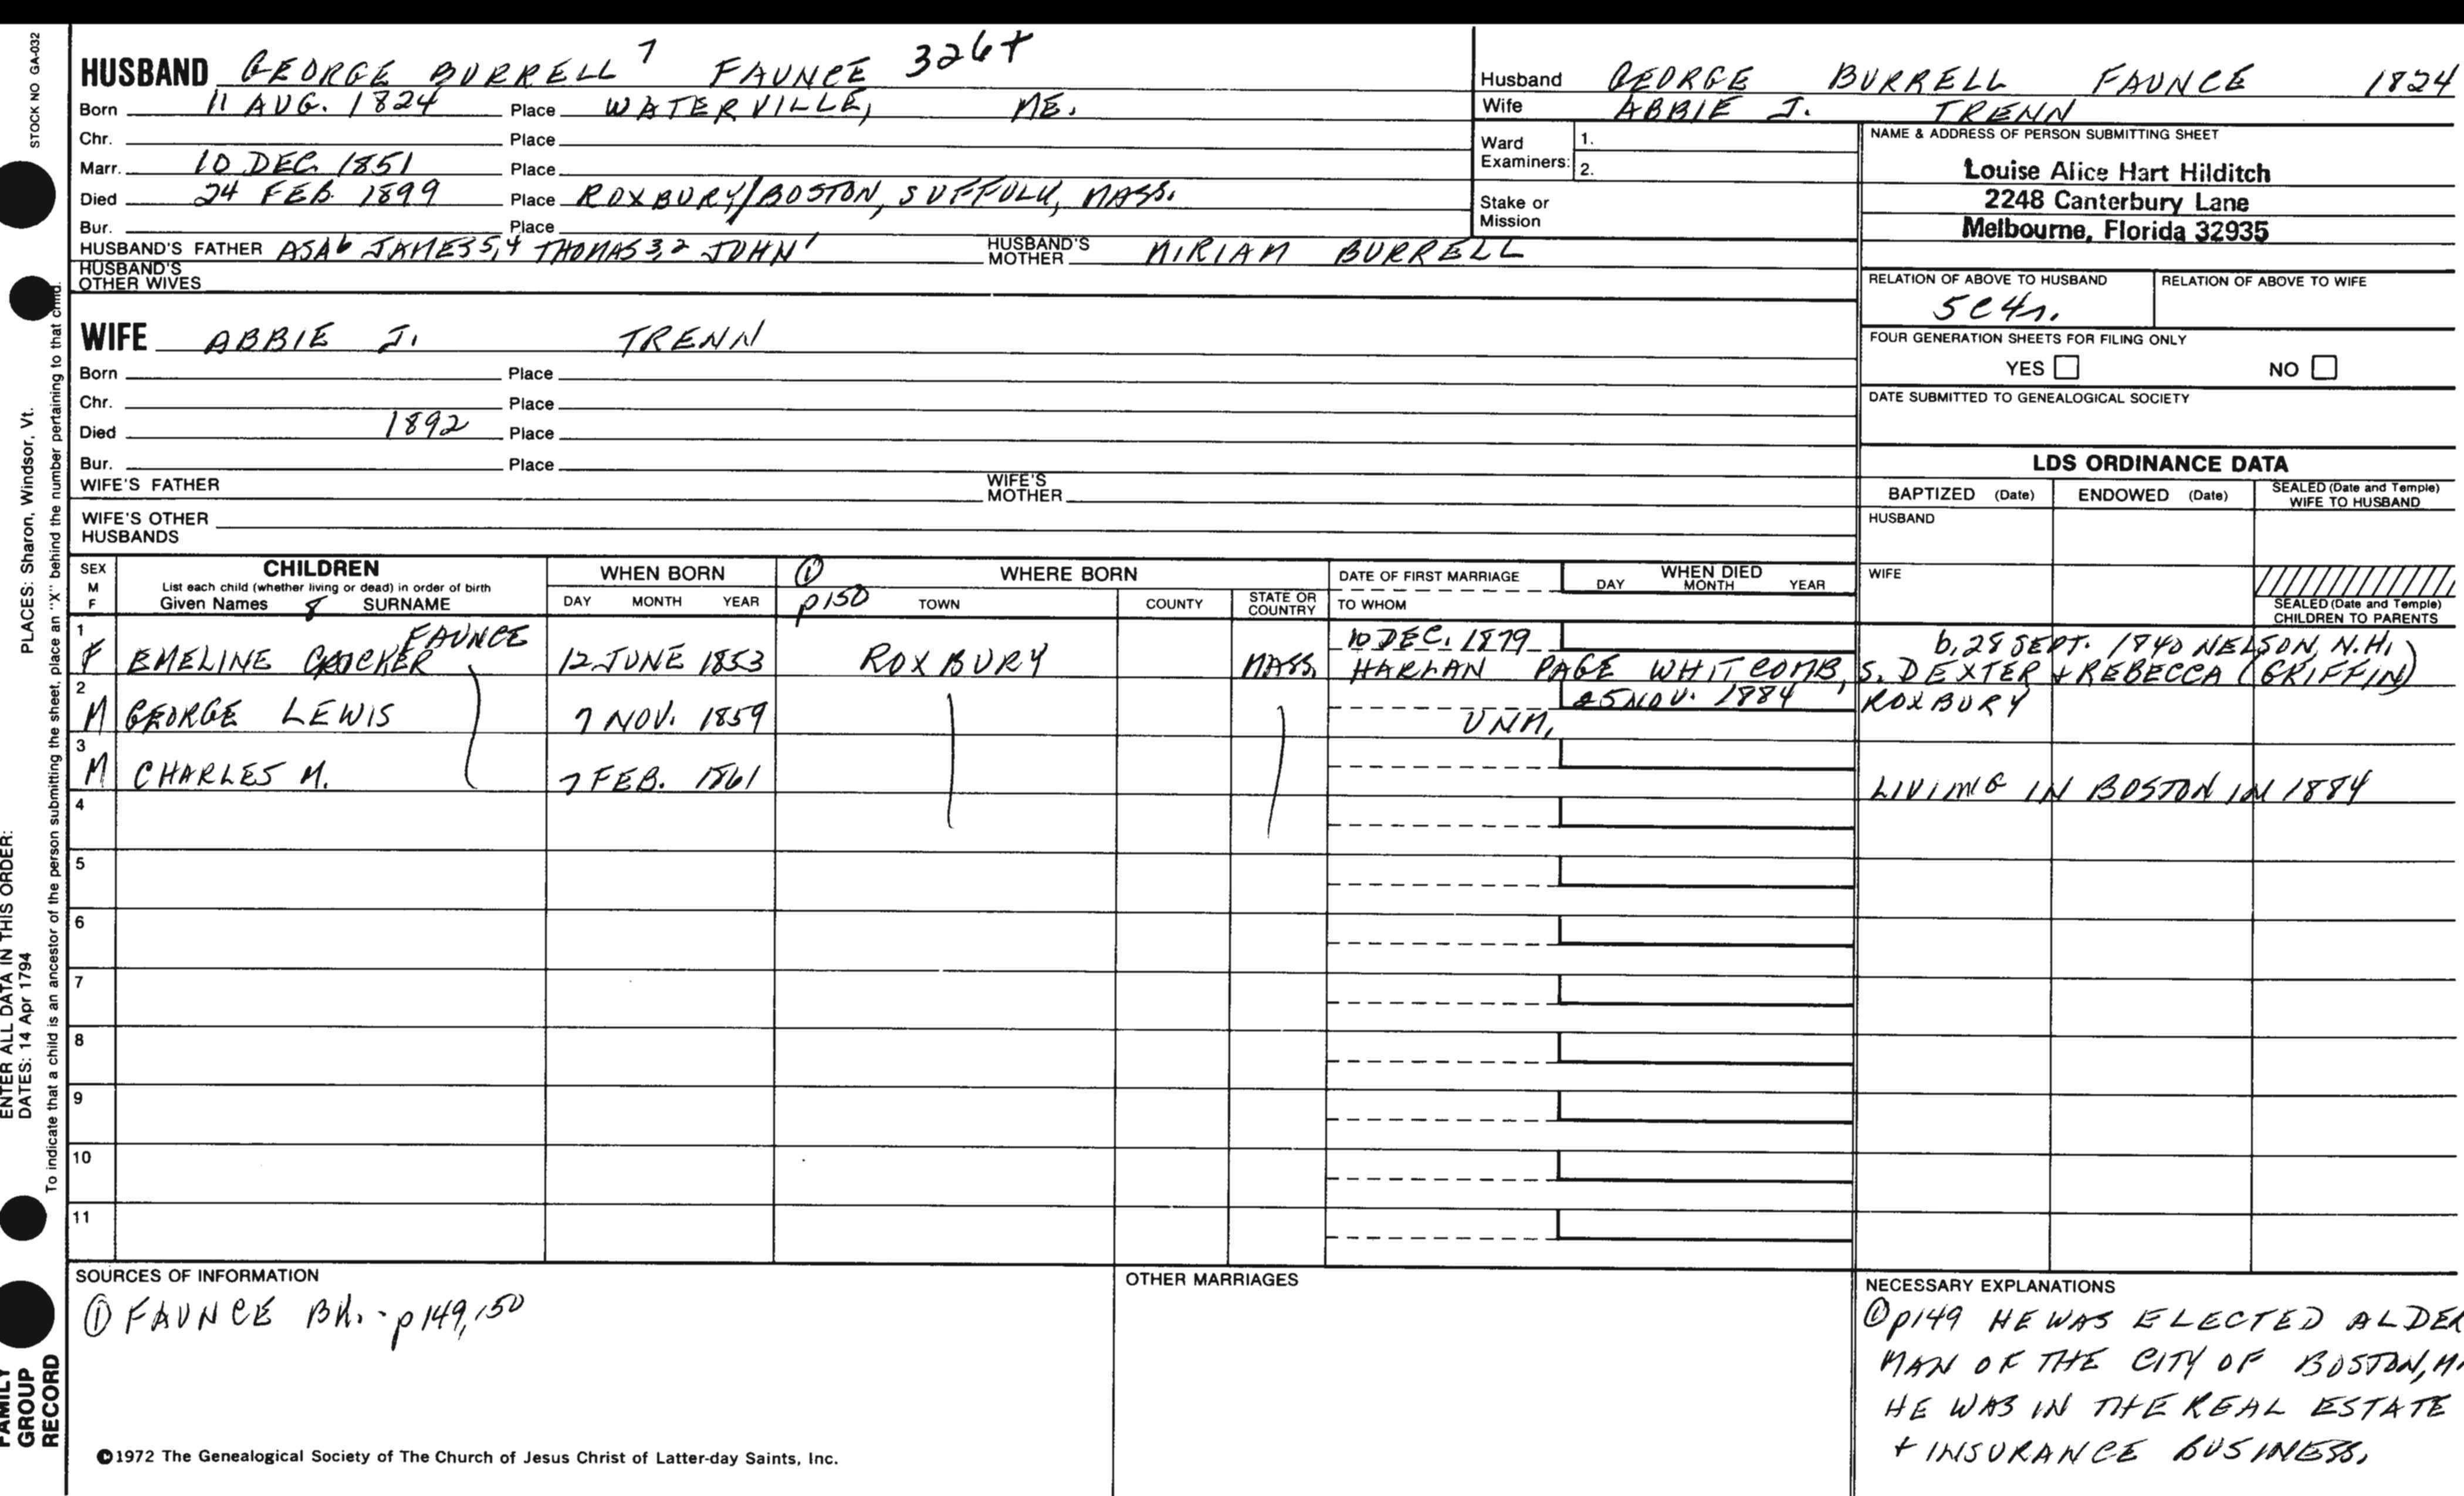 STOCK NO GA-032
HUSBAND GEORGE BURRELL 7 FAUNCE 326+
Born 11 AUG. 1824 Place WATERVILLE, ME.
Chr. Place
Marr. 10 DEC. 1851 Place
Died 24 FEB. 1899 Place ROXBURY/BOSTON, SUFFOLK, MASS.
Bur. Place
HUSBAND'S FATHER ASA6 JAMES5,4 THOMAS3,2 JOHN1 HUSBAND'S MOTHER MIRIAM BURRELL
HUSBAND'S OTHER WIVES
WIFE ABBIE J. TRENN
Born Place
Chr. Place
Died 1892 Place
Bur. Place
WIFE'S FATHER WIFE'S MOTHER
WIFE'S OTHER HUSBANDS
Husband GEORGE BURRELL FAUNCE 1824
Wife ABBIE J. TRENN
Ward Examiners: 1.
2.
Stake or Mission
NAME & ADDRESS OF PERSON SUBMITTING SHEET
Louise Alice Hart Hilditch
2248 Canterbury Lane
Melbourne, Florida 32935
RELATION OF ABOVE TO HUSBAND RELATION OF ABOVE TO WIFE
5C4r.
FOUR GENERATION SHEETS FOR FILING ONLY
YES NO
DATE SUBMITTED TO GENEALOGICAL SOCIETY
LDS ORDINANCE DATA
BAPTIZED (Date) ENDOWED (Date) SEALED (Date and Temple) WIFE TO HUSBAND
HUSBAND
WIFE
SEALED (Date and Temple) CHILDREN TO PARENTS
SEX M F CHILDREN WHEN BORN ① WHERE BORN DATE OF FIRST MARRIAGE WHEN DIED
List each child (whether living or dead) in order of birth
Given Names 8 SURNAME DAY MONTH YEAR p150 TOWN COUNTY STATE OR COUNTRY TO WHOM DAY MONTH YEAR
1 FAUNCE 10 DEC. 1879 b. 28 SEPT. 1840 NELSON, N.H.
F EMELINE CROCKER 12 JUNE 1853 ROXBURY MASS. HARLAN PAGE WHITCOMB, S. DEXTER + REBECCA (GRIFFIN)
2 25 NOV. 1884 ROXBURY
M GEORGE LEWIS 7 NOV. 1859 UNM.
3
M CHARLES M. 7 FEB. 1861 LIVING IN BOSTON IN 1884
4
5
6
7
8
9
10
11
SOURCES OF INFORMATION
① FAUNCE BK. - p149,150
OTHER MARRIAGES
NECESSARY EXPLANATIONS
① p149 HE WAS ELECTED ALDER
MAN OF THE CITY OF BOSTON,
HE WAS IN THE REAL ESTATE
+ INSURANCE BUSINESS.
©1972 The Genealogical Society of The Church of Jesus Christ of Latter-day Saints, Inc.
To indicate that a child is an ancestor of the person submitting the sheet, place an "X" behind the number pertaining to that child.
ENTER ALL DATA IN THIS ORDER:
DATES: 14 Apr 1794
PLACES: Sharon, Windsor, Vt.
FAMILY
GROUP
RECORD